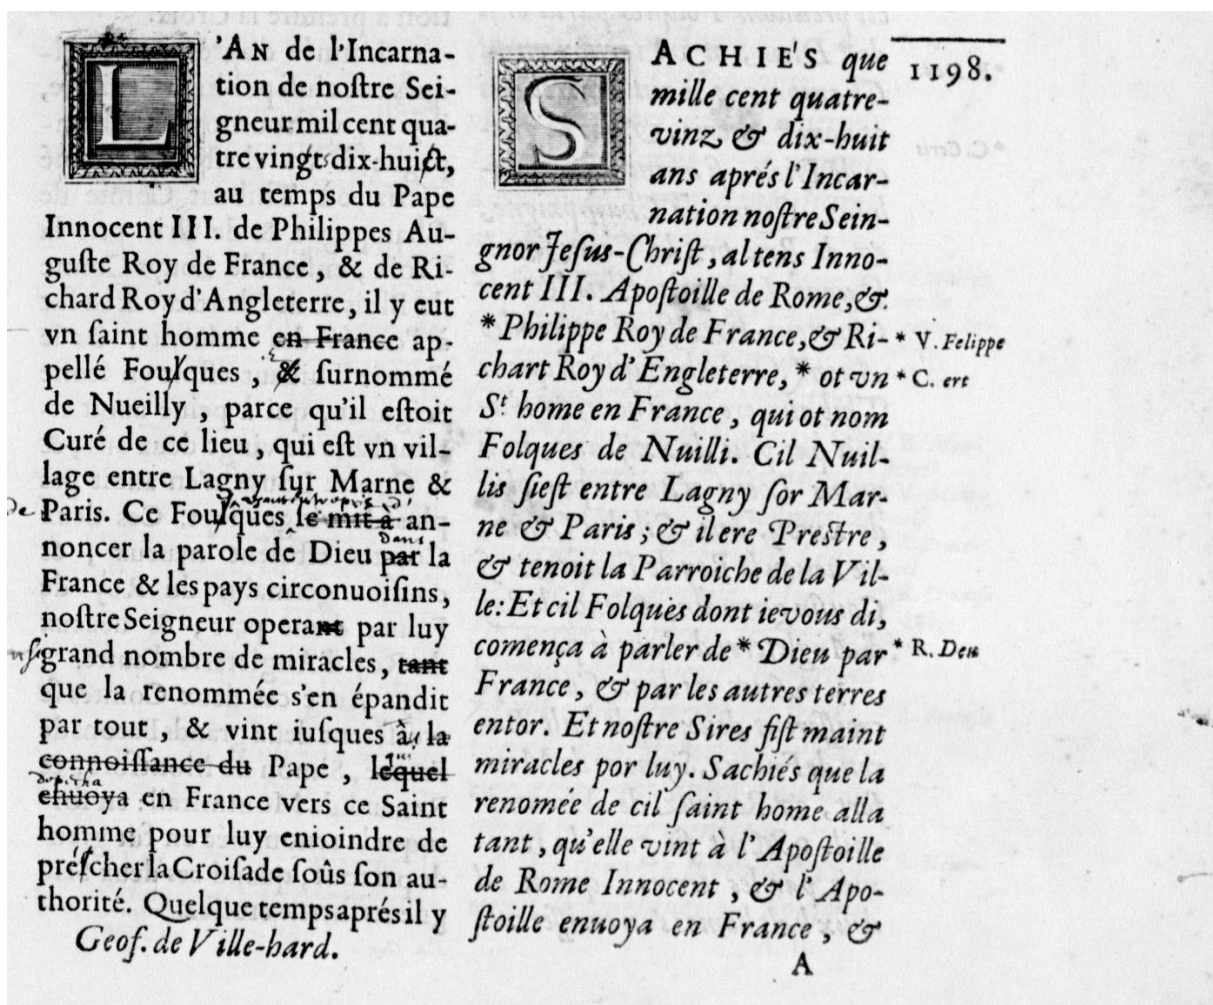 L'AN de l'Incarna-
tion de noſtre Sei-
gneur mil cent qua-
tre vingts dix-huict,
au temps du Pape
Innocent III. de Philippes Au-
guſte Roy de France, & de Ri-
chard Roy d'Angleterre, il y eut
vn ſaint homme en France ap-
pellé Foulques, & ſurnommé
de Nueilly, parce qu'il eſtoit
Curé de ce lieu, qui eſt vn vil-
lage entre Lagny ſur Marne &
Paris. Ce Foulques ſe mit à an-
dans
noncer la parole de Dieu par la
France & les pays circonuoiſins,
noſtre Seigneur operant par luy
grand nombre de miracles, tant
que la renommée s'en épandit
par tout, & vint iuſques à la
connoiſſance du Pape, lequel
enuoya en France vers ce Saint
homme pour luy enioindre de
préſcher la Croiſade ſoûs ſon au-
thorité. Quelque temps aprés il y
Geof. de Ville-hard.
SACHIE'S que
mille cent quatre-
vinz & dix-huit
ans aprés l'Incar-
nation noſtre Sein-
gnor Jeſus-Chriſt, al tens Inno-
cent III. Apoſtoille de Rome, &
*Philippe Roy de France, & Ri-
chart Roy d'Engleterre, * ot vn
St home en France, qui ot nom
Folques de Nuilli. Cil Nuil-
lis ſieſt entre Lagny ſor Mar-
ne & Paris; & il ere Preſtre,
& tenoit la Parroiche de la Vil-
le: Et cil Folques dont ie vous di,
comença à parler de * Dieu par
France, & par les autres terres
entor. Et noſtre Sires fiſt maint
miracles por luy. Sachiés que la
renomée de cil ſaint home alla
tant, qu'elle vint à l'Apoſtoille
de Rome Innocent, & l'Apo-
ſtoille enuoya en France, &
A
1198.
* V. Felippe
* C. ert
* R. Deu